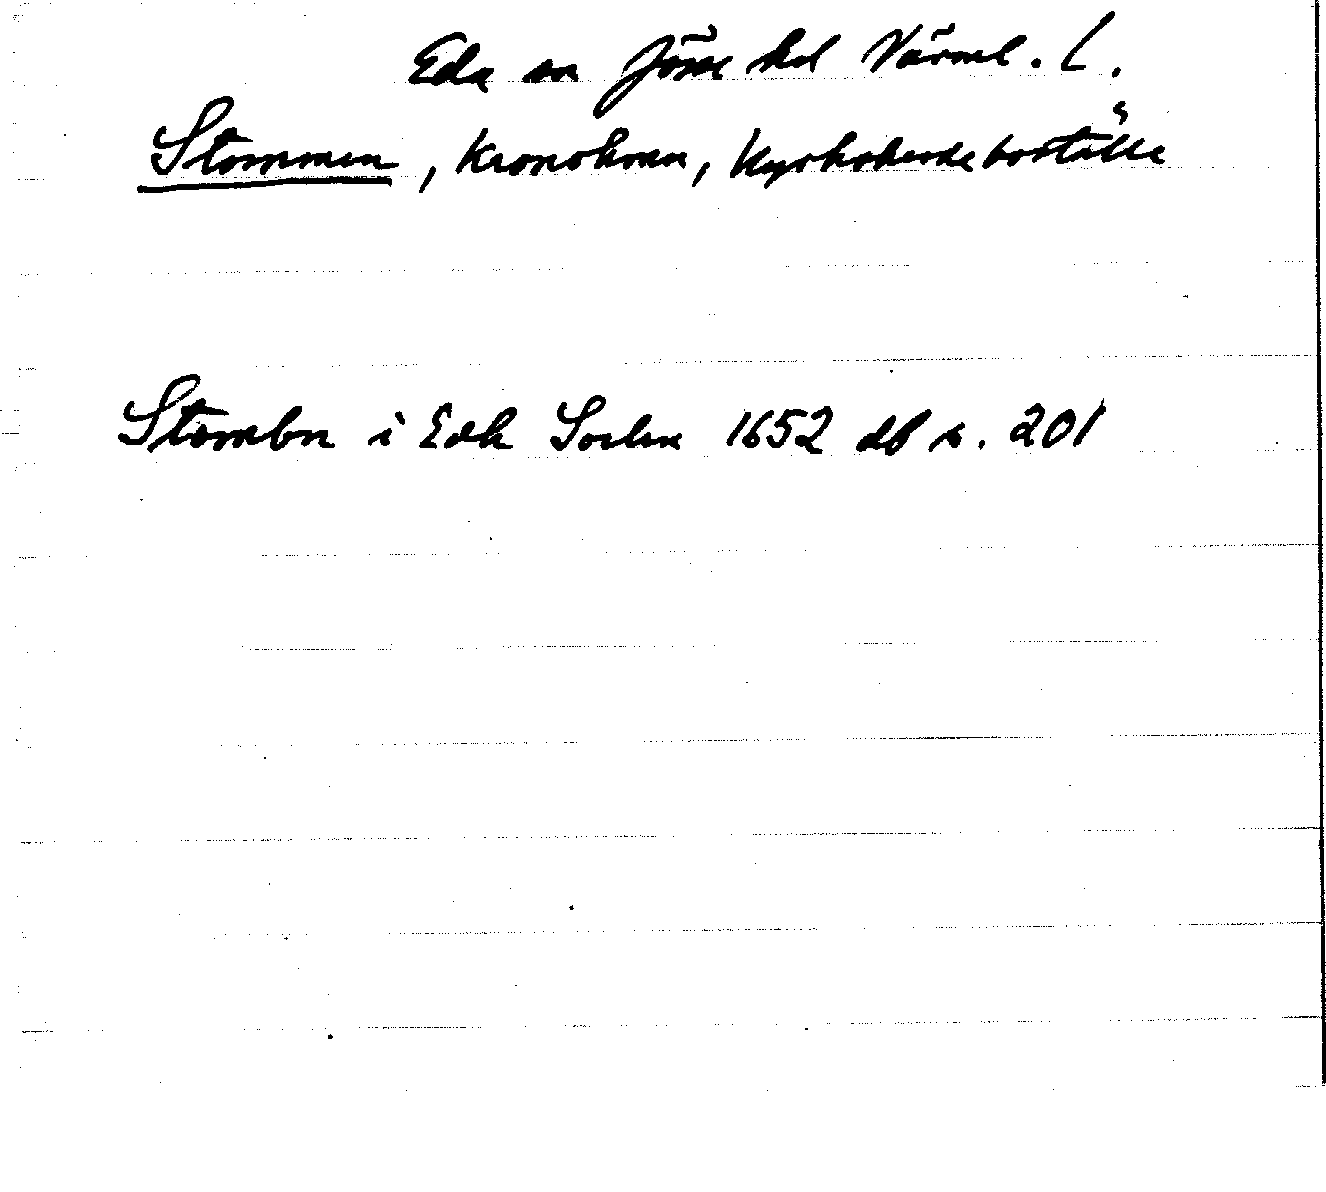 Eda sn Jösse hd Värml. l.
Stommen, Kronohemn, Kyrkoherdeboställe
Stombn i Eda Sochn 1652 db s. 201